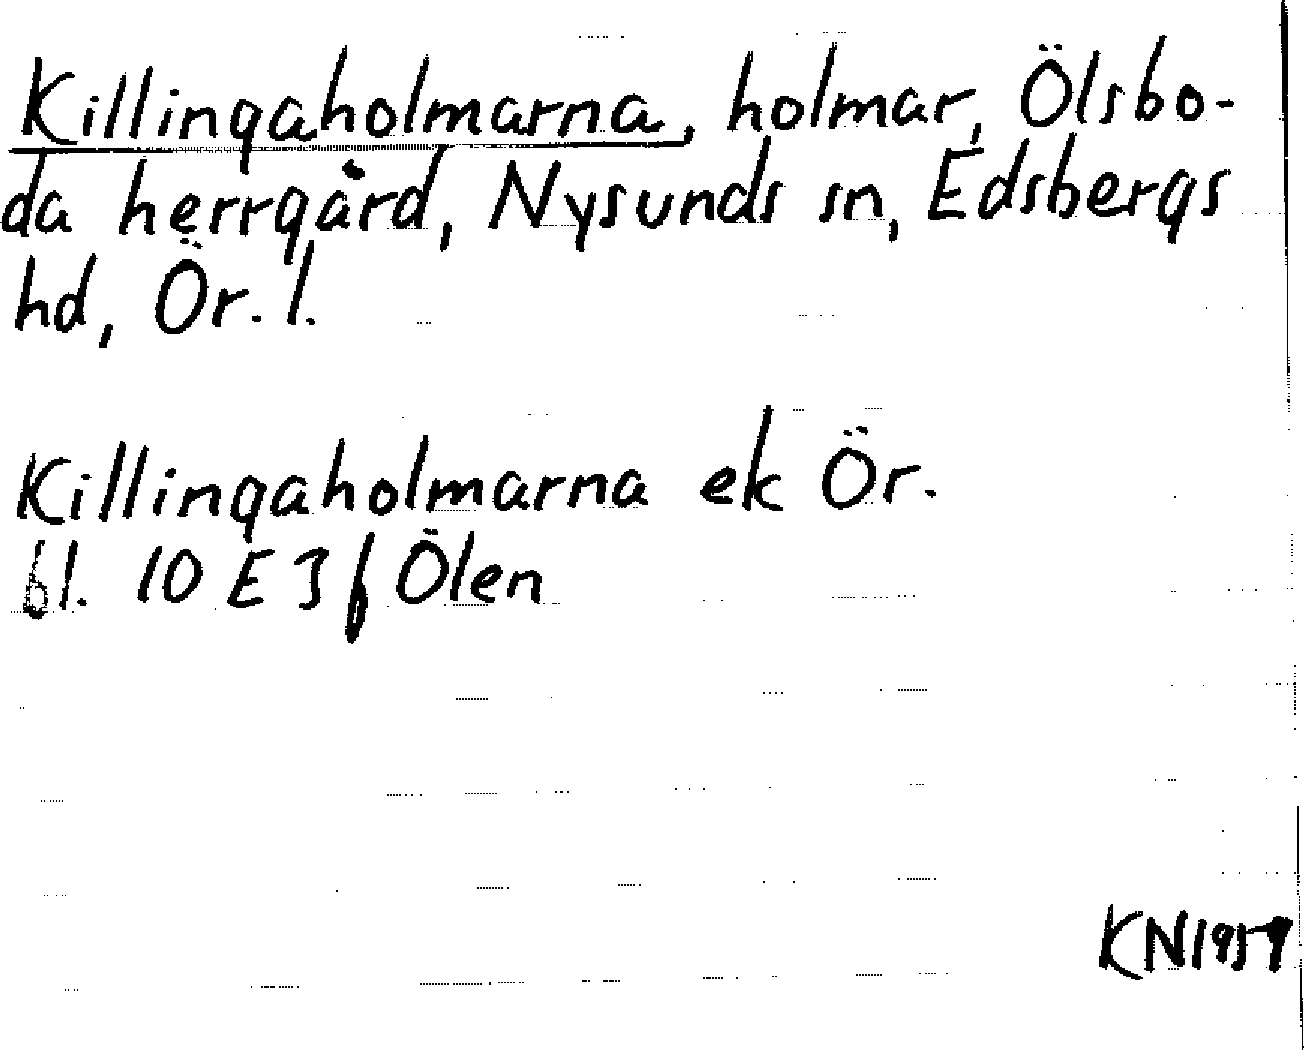 Killingaholmarna, holmar, Ölsbo-
da herrgård, Nysunds sn, Edsbergs
hd, Ör. l.
Killingaholmarna ek Ör.
bl. 10 E 3 f Ölen
KN1959